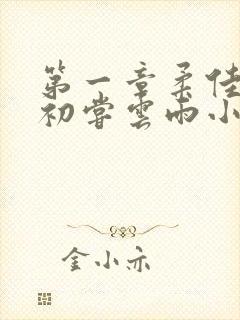 第一章柔佳
初尝云雨小
金小亦